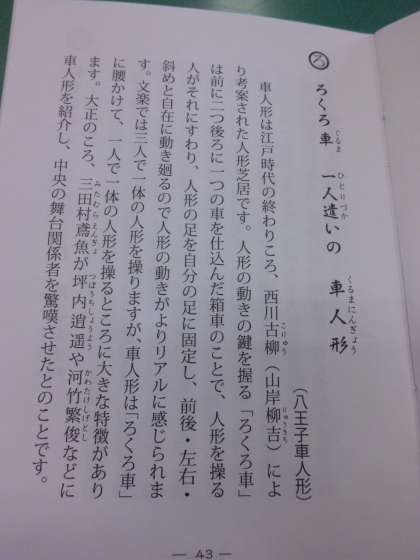 ろ
ろくろ車 一人遣いの 車人形
ぐるま ひとりづか くるまにんぎょう
（八王子車人形）
車人形は江戸時代の終わりころ、西川古柳（山岸柳吉）によ
こりゅう りゅうきち
り考案された人形芝居です。人形の動きの鍵を握る「ろくろ車」
は前に二つ後ろに一つの車を仕込んだ箱車のことで、人形を操る
人がそれにすわり、人形の足を自分の足に固定し、前後・左右・
斜めと自在に動き廻るので人形の動きがよりリアルに感じられま
す。文楽では三人で一体の人形を操りますが、車人形は「ろくろ車」
に腰かけて、一人で一体の人形を操るところに大きな特徴があり
ます。大正のころ、三田村鳶魚が坪内逍遥や河竹繁俊などに
みたむらえんぎょ つぼうちしょうよう かわたけしげとし
車人形を紹介し、中央の舞台関係者を驚嘆させたとのことです。
— 43 —